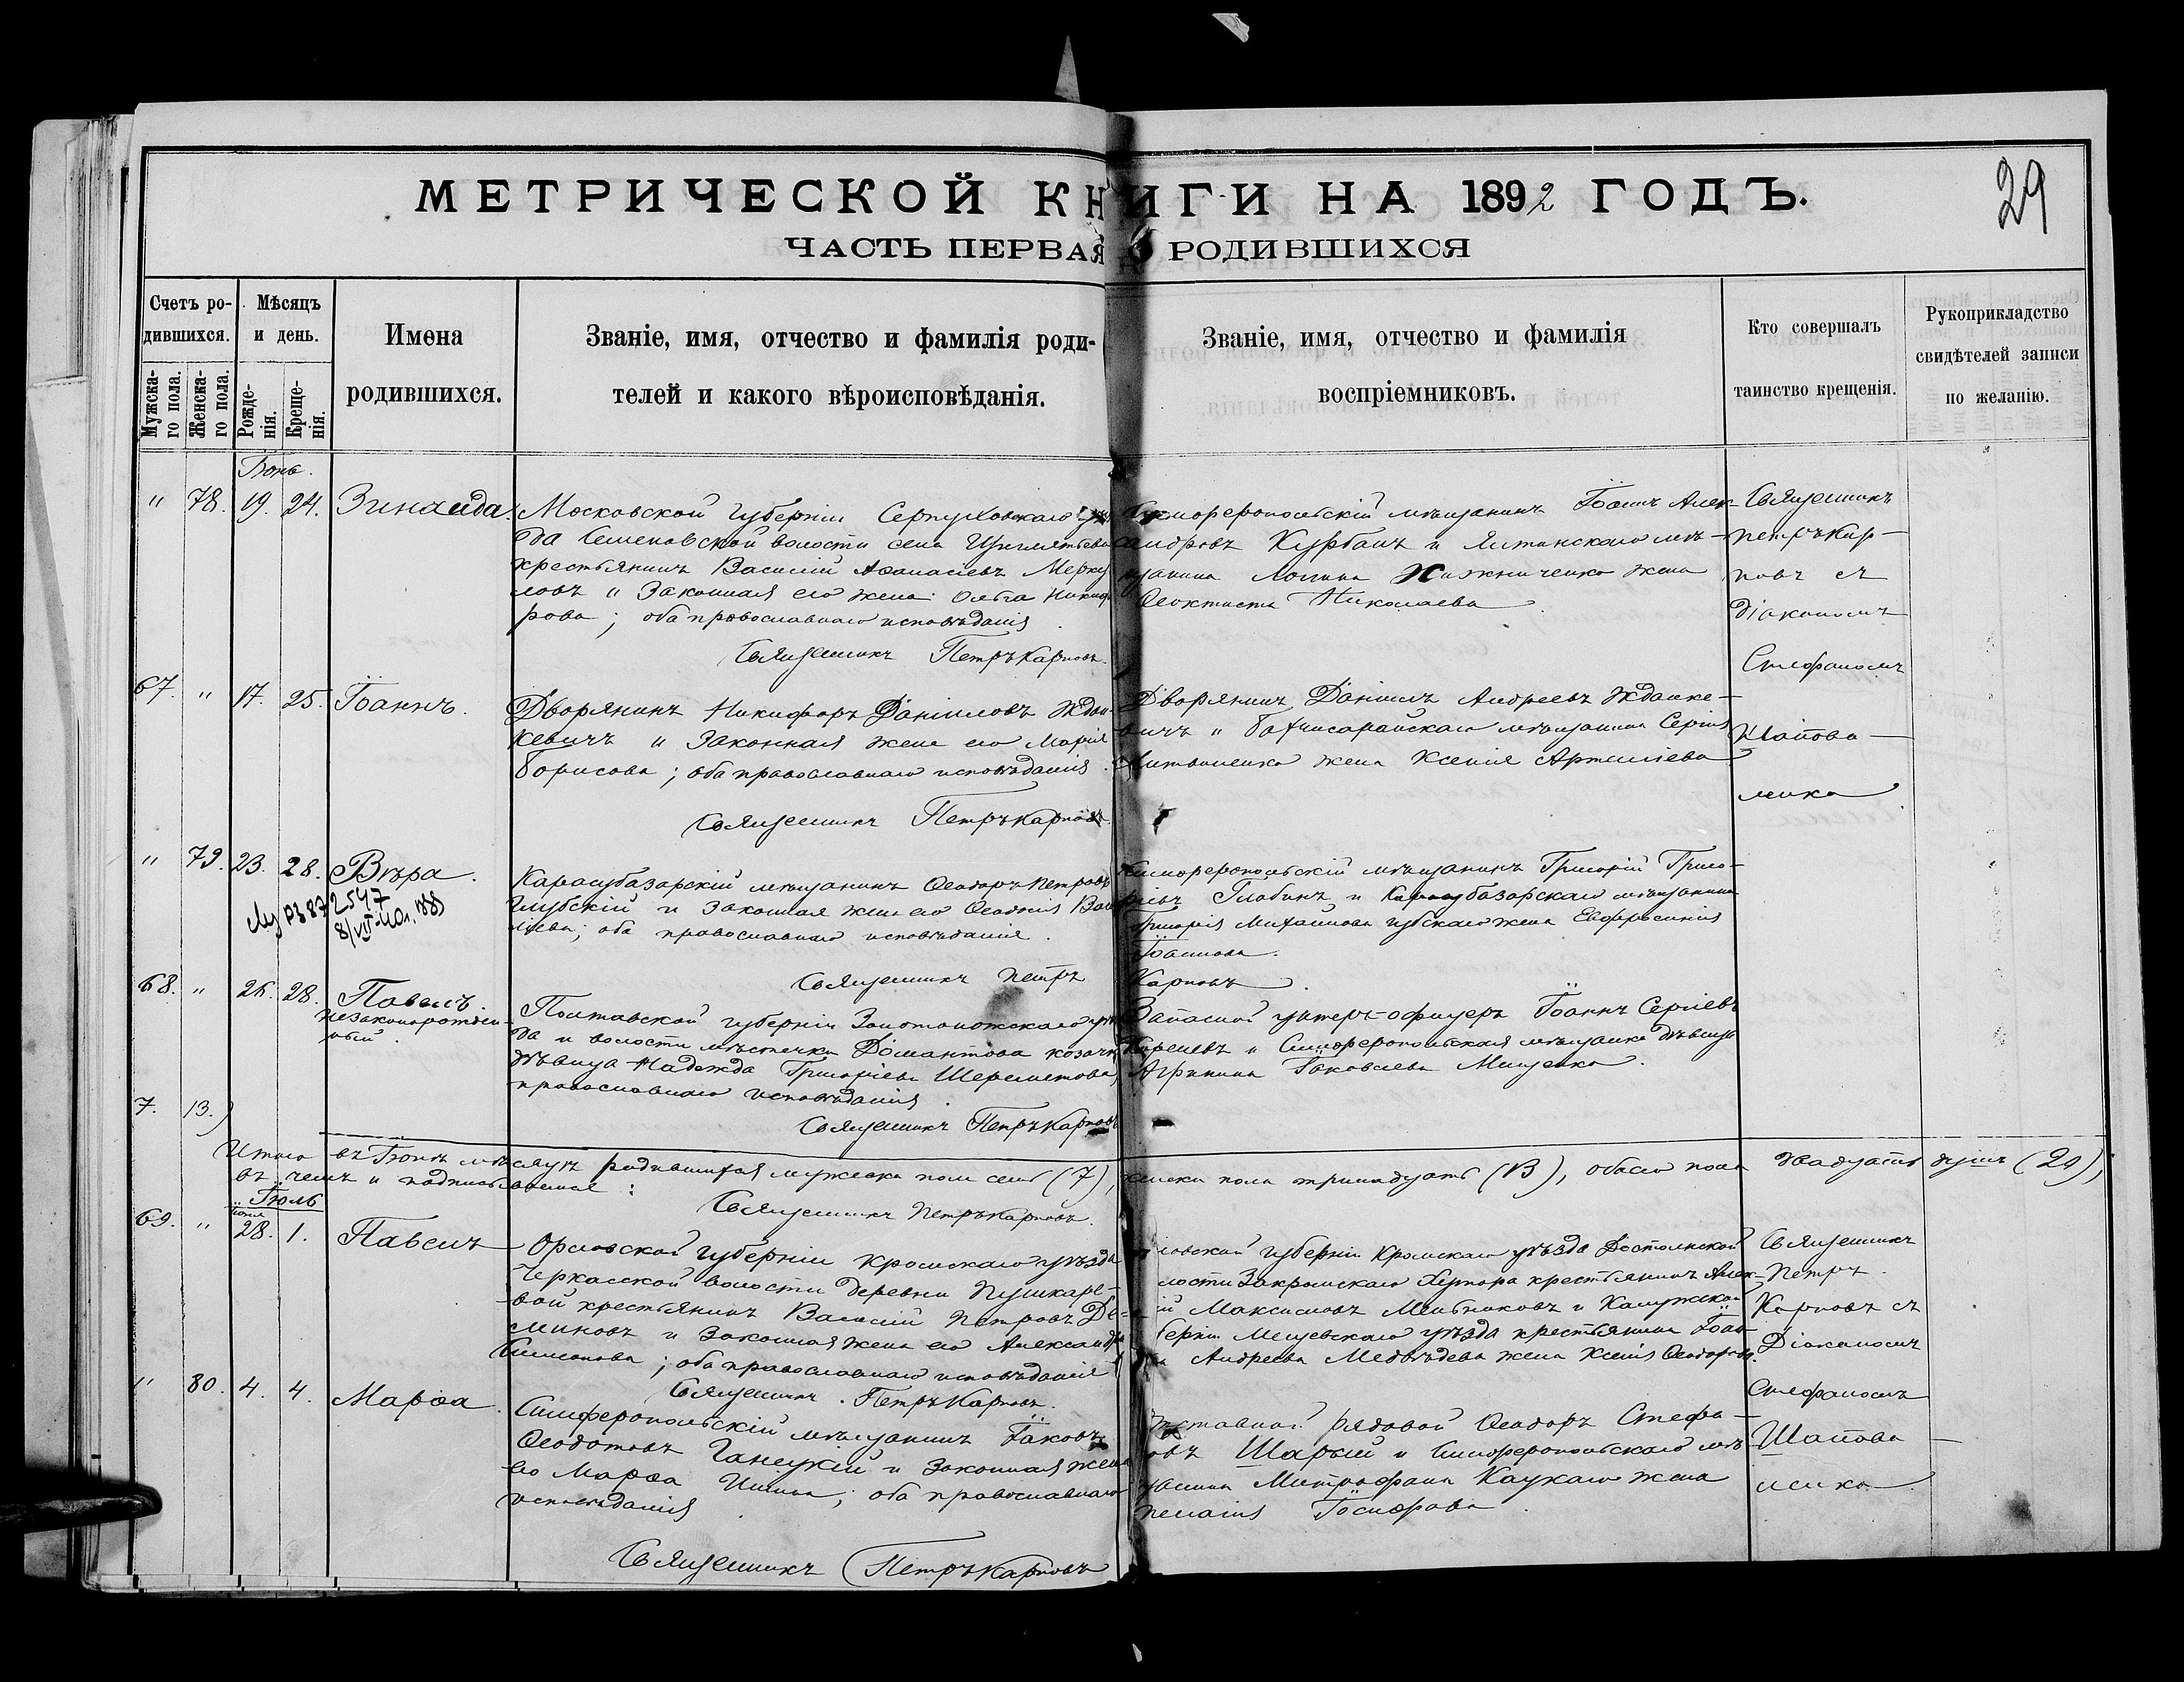 29
МЕТРИЧЕСКОЙ КНИГИ НА 1892 ГОДЪ.
ЧАСТЬ ПЕРВАЯ О РОДИВШИХСЯ
Счетъ родившихся.
Мужска-го пола.
Женска-го пола.
Мѣсяцъ и день.
Рожде-нія.
Креще-нія.
Имена родившихся.
Званіе, имя, отчество и фамилія роди-
телей и какого вѣроисповѣданія.
Званіе, имя, отчество и фамилія
воспріемниковъ.
Кто совершалъ
таинство крещенія.
Рукоприкладство
свидѣтелей записи
по желанію.
Іюнь.
" 78. 19. 24. Зинаида.
Московской губерніи Серпуховскаго уѣз
да Семеновской волости села
крестьянинъ Василій Аѳанасіевъ Мерку
ловъ и законная его жена Ольга Никиф
рова; оба православнаго исповѣданія
Священникъ Петръ Карповъ.
Симферопольскій мѣщанинъ Іоаннъ Алек-
сандровъ Курбанъ и Ялтинскаго мѣ-
щанина Логина Нижниченко жена
Ѳеоктиста Николаева
Священникъ
Петръ Кар-
повъ съ
діакономъ
Стефаномъ
Шапова-
ленко
67. " 17. 25. Іоаннъ.
Дворянинъ Никифоръ Даніиловъ Ждан-
кевичъ и законная жена его Марія
Борисова; оба православнаго исповѣданія.
Священникъ Петръ Карповъ
Дворянинъ Даніилъ Андреевъ Жданке-
вичъ и Бахчисарайскаго мѣщанина Сергія
Литвиненко жена Ксенія Артеміева
" 79. 23. 28. Вѣра.
2547
Карасубазарскій мѣщанинъ Ѳеодоръ Петровъ
Глубскій и законная жена его Ѳеодосія Васи
лiева; оба православнаго исповѣданія.
Священникъ Петръ Карповъ.
Симферопольскій мѣщанинъ Григорій Григо-
рiевъ Глабинъ и Карасубазарскаго мѣщанина
Григорія Михайлова жена Евфросинія
Іоаннова.
68. " 26. 28. Павелъ.
незаконорожден-
ный.
Полтавской губерніи Золотоношскаго уѣз
да и волости мѣстечка Домантова козачка
дѣвица Надежда Григоріева Шереметова
православнаго исповѣданія.
Священникъ Петръ Карповъ
Запасной унтеръ-офицеръ Іоаннъ Сергіевъ
и Симферопольская мѣщанка дѣвица
Агрипина Іаковлева Мищенко.
7. 13.)
Итого въ Іюнѣ мѣсяцѣ родившихся мужеска пола семь (7), женска пола тринадцать (13), обоего пола двадцать душъ (20),
въ чемъ и подписываемся:
Священникъ Петръ Карповъ.
Іюль
Іюня
69. " 28. 1. Павелъ
Орловской губерніи Кромскаго уѣзда
Черкасской волости деревни Пушкаре-
вой крестьянинъ Василій Петровъ Де-
миновъ и законная жена его Александра
Симеонова; оба православнаго исповѣданія
Священникъ Петръ Карповъ.
ловской губерніи Кромскаго уѣзда
лости Закромскаго Хутора крестьянинъ Алек-
ій Максимовъ Мельниковъ и Калужской
берніи Мещевскаго уѣзда крестьянина Іоан-
на Андреева Медвѣдева жена Ксенія Ѳеодорова.
Священникъ
Петръ
Карповъ съ
Діакономъ
Стефаномъ
Шапова-
ленко
" 80. 4. 4. Марѳа.
Симферопольскій мѣщанинъ Іаковъ
Ѳеодотовъ Ганецкій и законная жена
его Марѳа Ильина; оба православнаго
исповѣданія.
Священникъ Петръ Карповъ
Отставной рядовой Ѳеодоръ Стефа-
новъ Шарый и Симферопольскаго мѣ-
щанина Митрофана Каукало жена
Пелагія Іосифова.